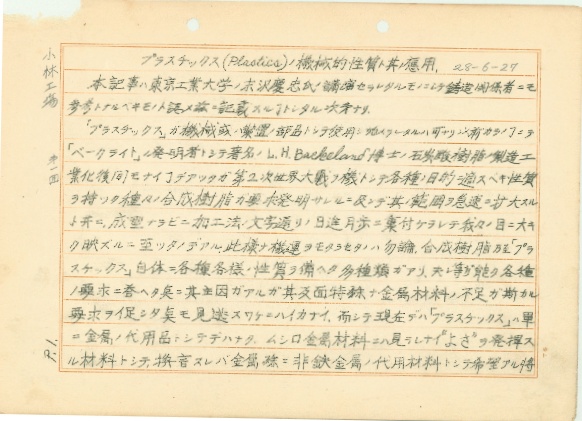 プラスチックス(Plastics)ノ機械的性質ト其ノ應用. 28-6-27
本記事ハ東京工業大学ノ末沢慶忠氏ノ講演セラレタルモノニシテ鋳造関係者ニモ
参考トナルベキモノト認メ茲ニ記載スルコトトシタル次第ナリ.
「プラスチックス」ガ機械或ハ装置ノ部品トシテ使用シ始メラレタルハ可ナリ以前カラノコトデ
「ベークライト」ノ発明者トシテ著名ノL.H. Backeland博士ノ石炭酸樹脂ノ製造工
業化後間モナイコトデアッタガ第二次世界大戦ヲ機トシテ各種ノ目的ニ適スベキ性質
ヲ持ツタ種々ノ合成樹脂ガ発明サレルニ及ンデ其ノ範囲ヲ急速ニ拡大スル
ト共ニ、成型ナラビニ加工法ノ文字通リノ日進月歩ニ裏付ケラレテ我々ノ目ニ大キ
ク映ズルニ至ツタノデアル.此様ナ機運ヲモタラセタノハ勿論、合成樹脂乃至「プラ
スチックス」自体ニ各種各様ノ性質ヲ備ヘタ多種類ガアリ、夫等ガ能ク各種
ノ要求ニ答ヘタ点ニ其主因ガアルガ其反面特殊ナ金属材料ノ不足ガ斯カル
要求ヲ促シタ点モ見逃スワケニハイカナイ、而シテ現在デハ「プラスチックス」ハ単
ニ金属ノ代用品トシテデハナク、ムシロ金属材料ニハ見ラレナイ"よさ"ヲ発揮ス
ル材料トシテ、換言スレバ金属、殊ニ非鉄金属ノ代用材料トシテ希望アル将
小林工場
P.1.